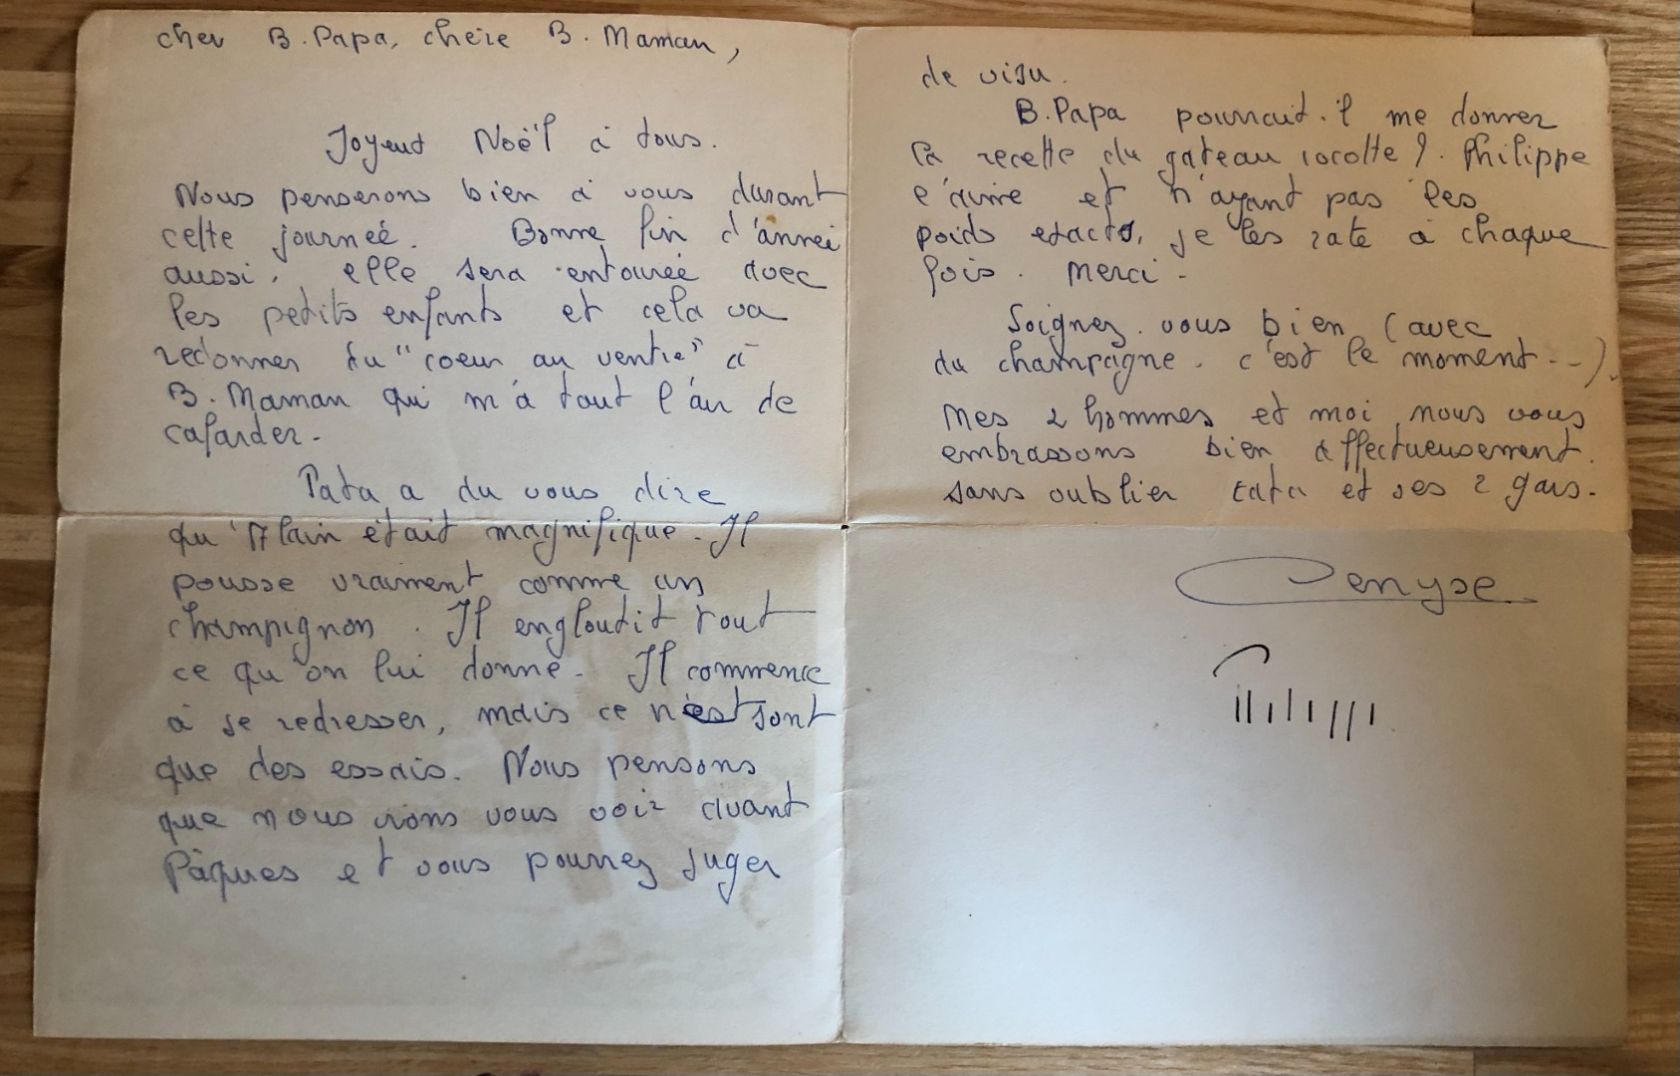 cher B. Papa, chère B. Maman,
Joyeux Noël à tous.
Nous penserons bien à vous durant
cette journeé. Bonne fin d'année
aussi. elle sera entourée avec
les petits enfants et cela va
redonner du "coeur au ventre" à
B. Maman qui m'a tout l'air de
cafarder.
Tata a du vous dire
qu'Alain était magnifique. Il
pousse vraiment comme un
champignon. Il engloutit tout
ce qu'on lui donne. Il commence
à se redresser, mais ce n'est sont
que des essais. Nous pensons
que nous irons vous voir avant
Pâques et vous pourrez juger
de visu.
B. Papa pourrait-il me donner
la recette du gateau cocotte ?. Philippe
l'aime et n'ayant pas les
poids exacts, je les rate à chaque
fois. Merci.
Soignez-vous bien (avec
du champagne. c'est le moment...).
Mes 2 hommes et moi nous vous
embrassons bien affectueusement.
sans oublier tata et ses 2 gars.
Denyse